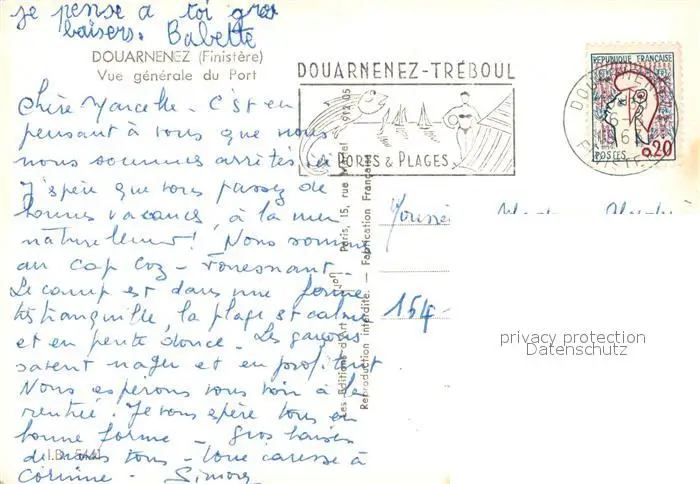 je pense a toi gros
baisers. Babette
DOUARNENEZ (Finistère)
Vue générale du Port
DOUARNENEZ-TRÉBOUL
PORTS & PLAGES
RÉPUBLIQUE FRANÇAISE
POSTES 0,20
Chère Marcelle - C'est en
pensant à vous que nous
nous sommes arrêtés
J'spère que vous passez de
bonnes vacances, à la mer
naturellement! Nous sommes
au cap Coz - Fouesnant -
Le camp est dans une ferme
très tranquille, la plage est calme
et en pente douce - Les garçons
savent nager et en profitent
Nous esperons vous voir à la
rentrée. Je vous espère tous en
bonne forme - gros baisers
de nous tous - Une caresse à
Corinne - Simone
I.D. 5441
Les Editions d'Art Paris, 15, rue 912 05
Reproduction interdite. — Fabrication Française
154
privacy protection
Datenschutz